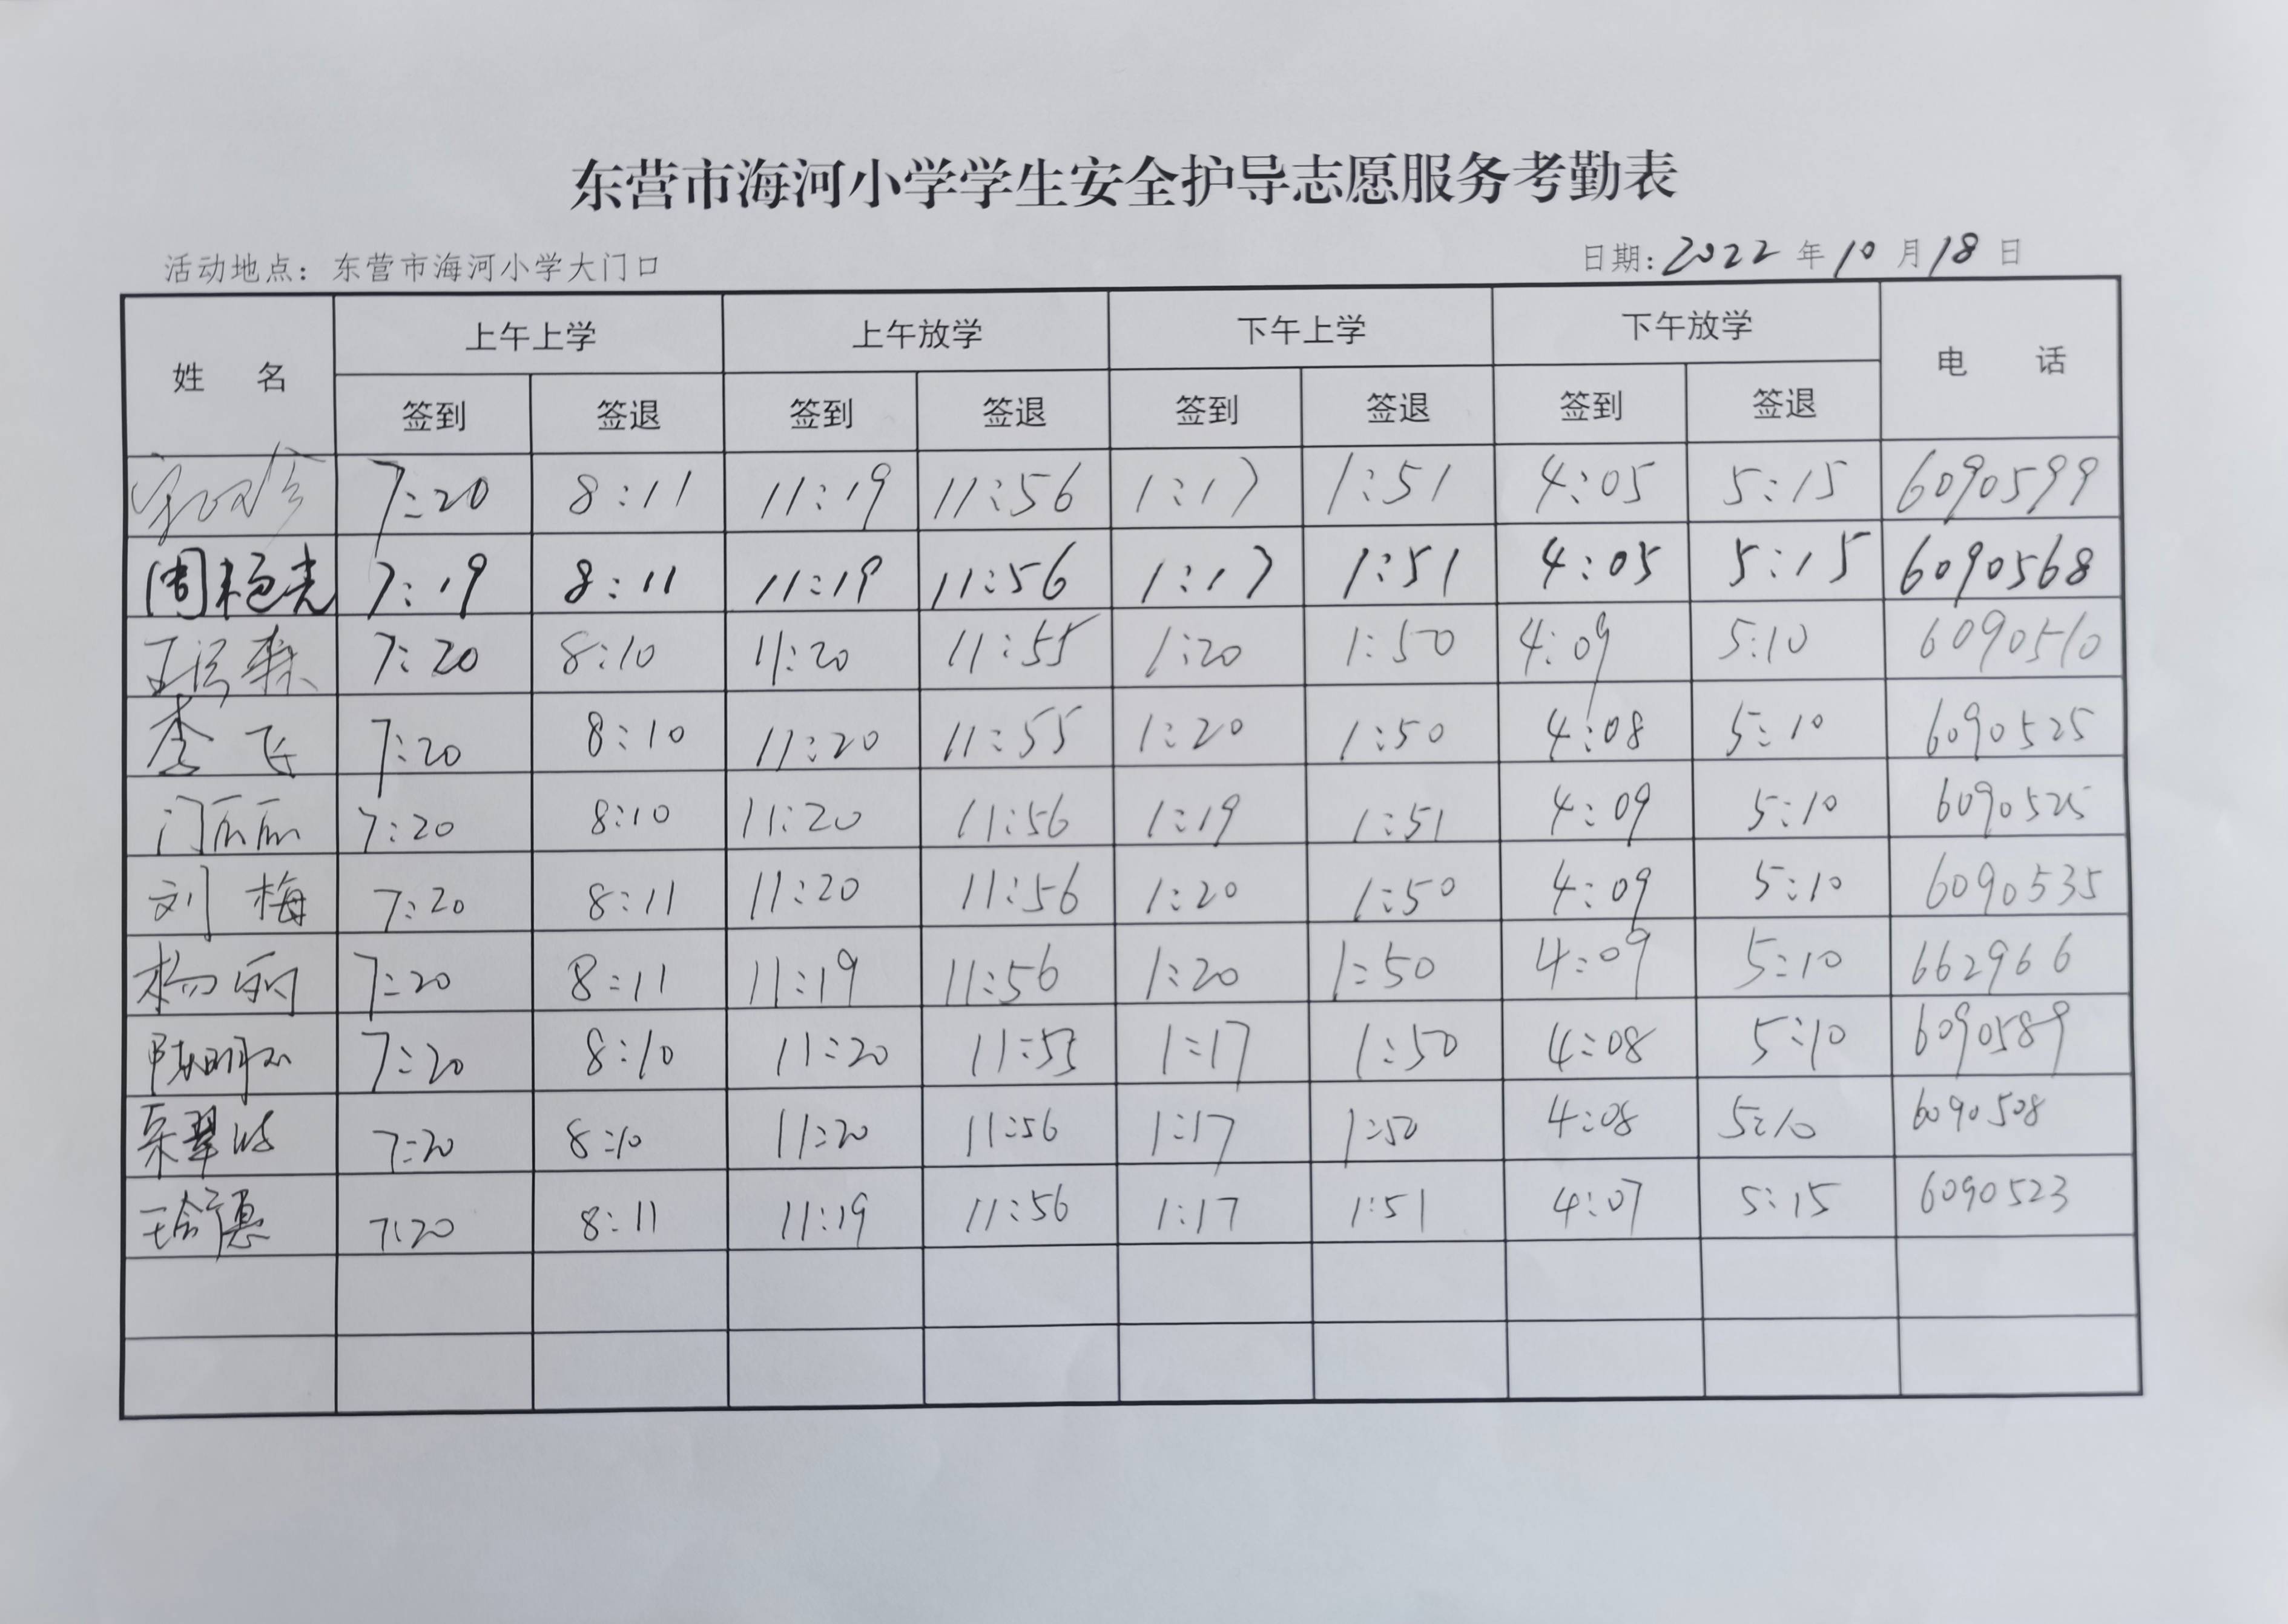 东营市海河小学学生安全护导志愿服务考勤表
活动地点：东营市海河小学大门口 日期：2022 年 10 月 18 日
姓 名 上午上学 上午放学 下午上学 下午放学 电 话
签到 签退 签到 签退 签到 签退 签到 签退
7:20 8:11 11:19 11:56 1:17 1:51 4:05 5:15 6090599
7:19 8:11 11:19 11:56 1:17 1:51 4:05 5:15 6090568
7:20 8:10 11:20 11:55 1:20 1:50 4:09 5:10 6090510
李飞 7:20 8:10 11:20 11:55 1:20 1:50 4:08 5:10 6090525
门丽丽 7:20 8:10 11:20 11:56 1:19 1:51 4:09 5:10 6090525
刘梅 7:20 8:11 11:20 11:56 1:20 1:50 4:09 5:10 6090535
杨丽 7:20 8:11 11:19 11:56 1:20 1:50 4:09 5:10 662966
7:20 8:10 11:20 11:55 1:17 1:50 4:08 5:10 6090589
7:20 8:10 11:20 11:56 1:17 1:50 4:08 5:10 6090508
7:20 8:11 11:19 11:56 1:17 1:51 4:07 5:15 6090523